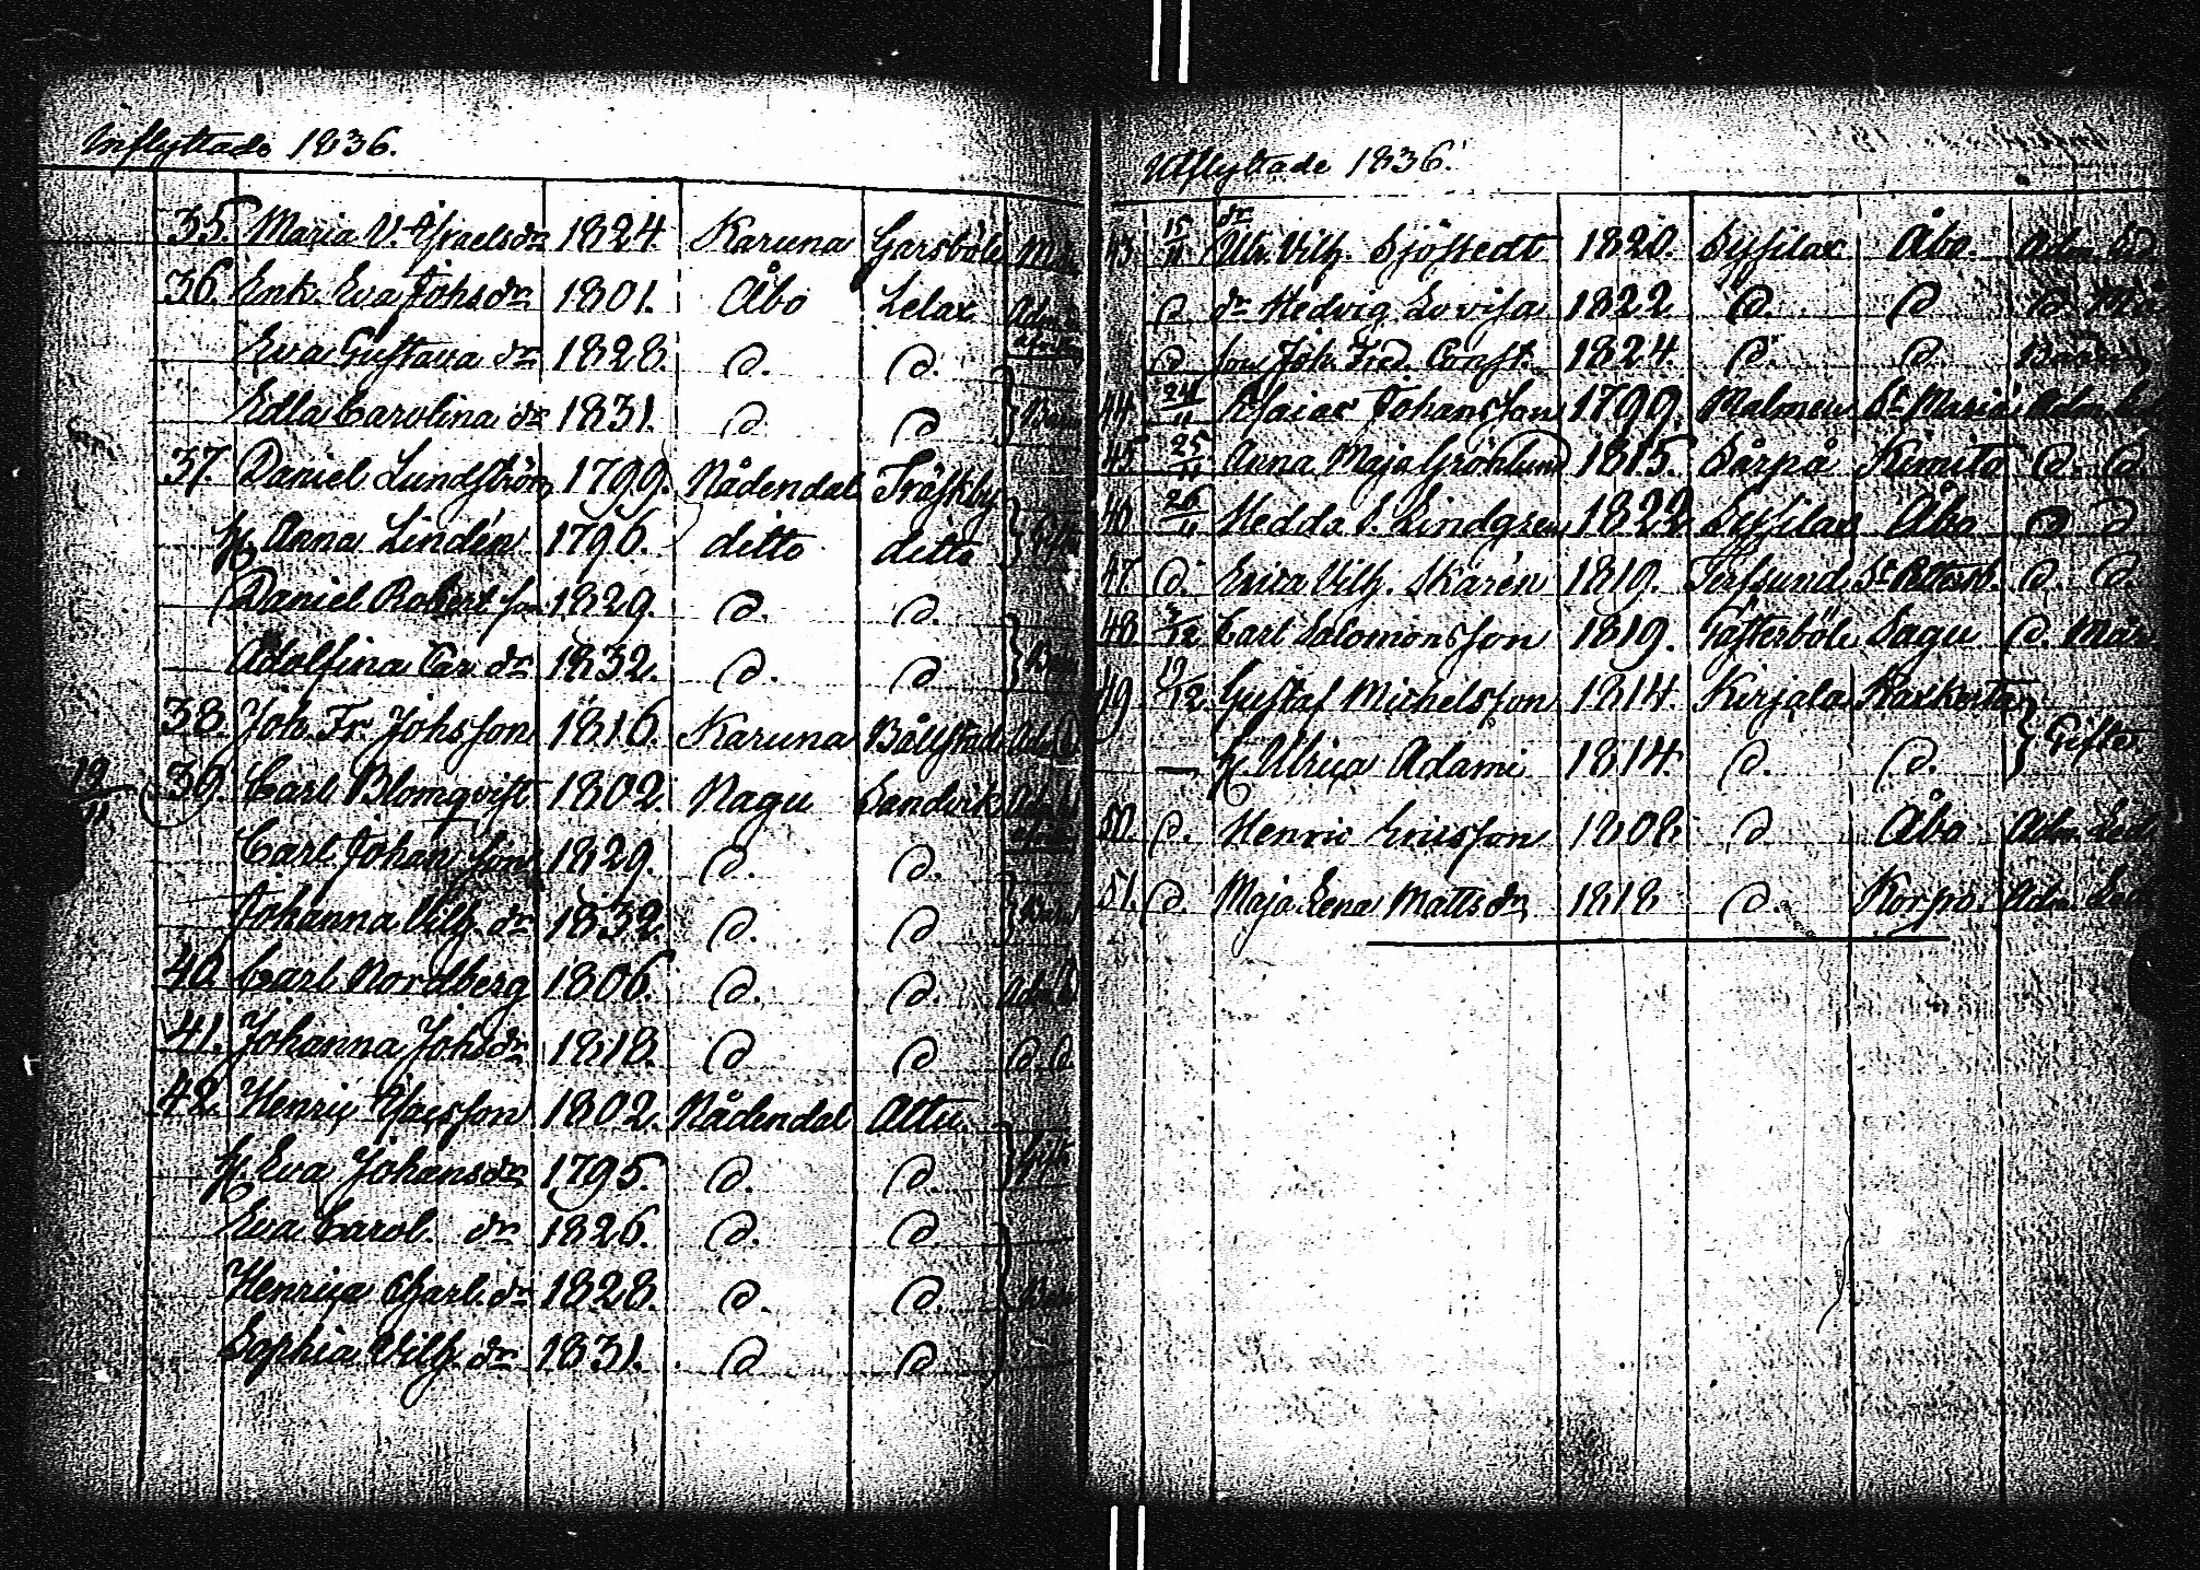 Inflyttade 1836.
35. Maria V. Israelsdr 1824. Karuna Garsböle
36. Enk. Eva Johsdr 1801. Åbo Lelax
Eva Gustava dr 1828. d. d.
Edla Carolina dr 1831. d. d. Barn
37. Daniel Lundström 1799. Nådendal Träskby
h. Anna Lindén 1796. ditto ditto Gifta
Daniel Robert son 1829. d. d.
Adolfina Car. dr 1832. d. d. Barn
38. Joh. Fr. Johsson 1816. Karuna Bållstad
19/11 39. Carl Blomqvist 1802. Nagu Sandvik
Carl Johan son 1829. d. d.
Johanna Vilh. dr 1832. d. d. Barn
40. Carl Nordberg 1806. d. d.
41. Johanna Johsdr 1818. d. d. d. d.
42. Henric Isacsson 1802. Nådendal Attu.
h. Eva Johansdr 1795. d. d. Gifta
Eva Carol. dr 1826. d. d.
Henrica Charl. dr 1828. d. d. Barn
Sophia Vilh. dr 1831. d. d.
Utflyttade 1836.
43. 15/11 dr Ulr. Vilh. Sjöstedt 1820. Sysilax Åbo.
d. dr Hedvig Lovisa 1822. d. d.
d. son Joh. Fred. Const. 1824. d. d. Barn
44. 24/11 Esaias Johansson 1799. Malmen St Maria
45. 25/11 Anna Maja Grönlund 1815. Sårpå Kimito d. d.
46. 26/11 Hedda S. Lindgren 1822 Sysilax Åbo d. d.
47. d. Erica Vilh. Skarén 1819. St Petersb. d. d.
48. 3/12 Carl Salomonsson 1819. Täfterböle Sagu d.
49 19/12. Gustaf Michelsson 1814. Kirjala
— h. Ulrica Adami 1814. d. d. Gifta
50. d. Henric Ericsson 1808. d. Åbo Adm. Led.
51. d. Maja Lena Mattsdr 1818 d. Korpo Adm. Led.